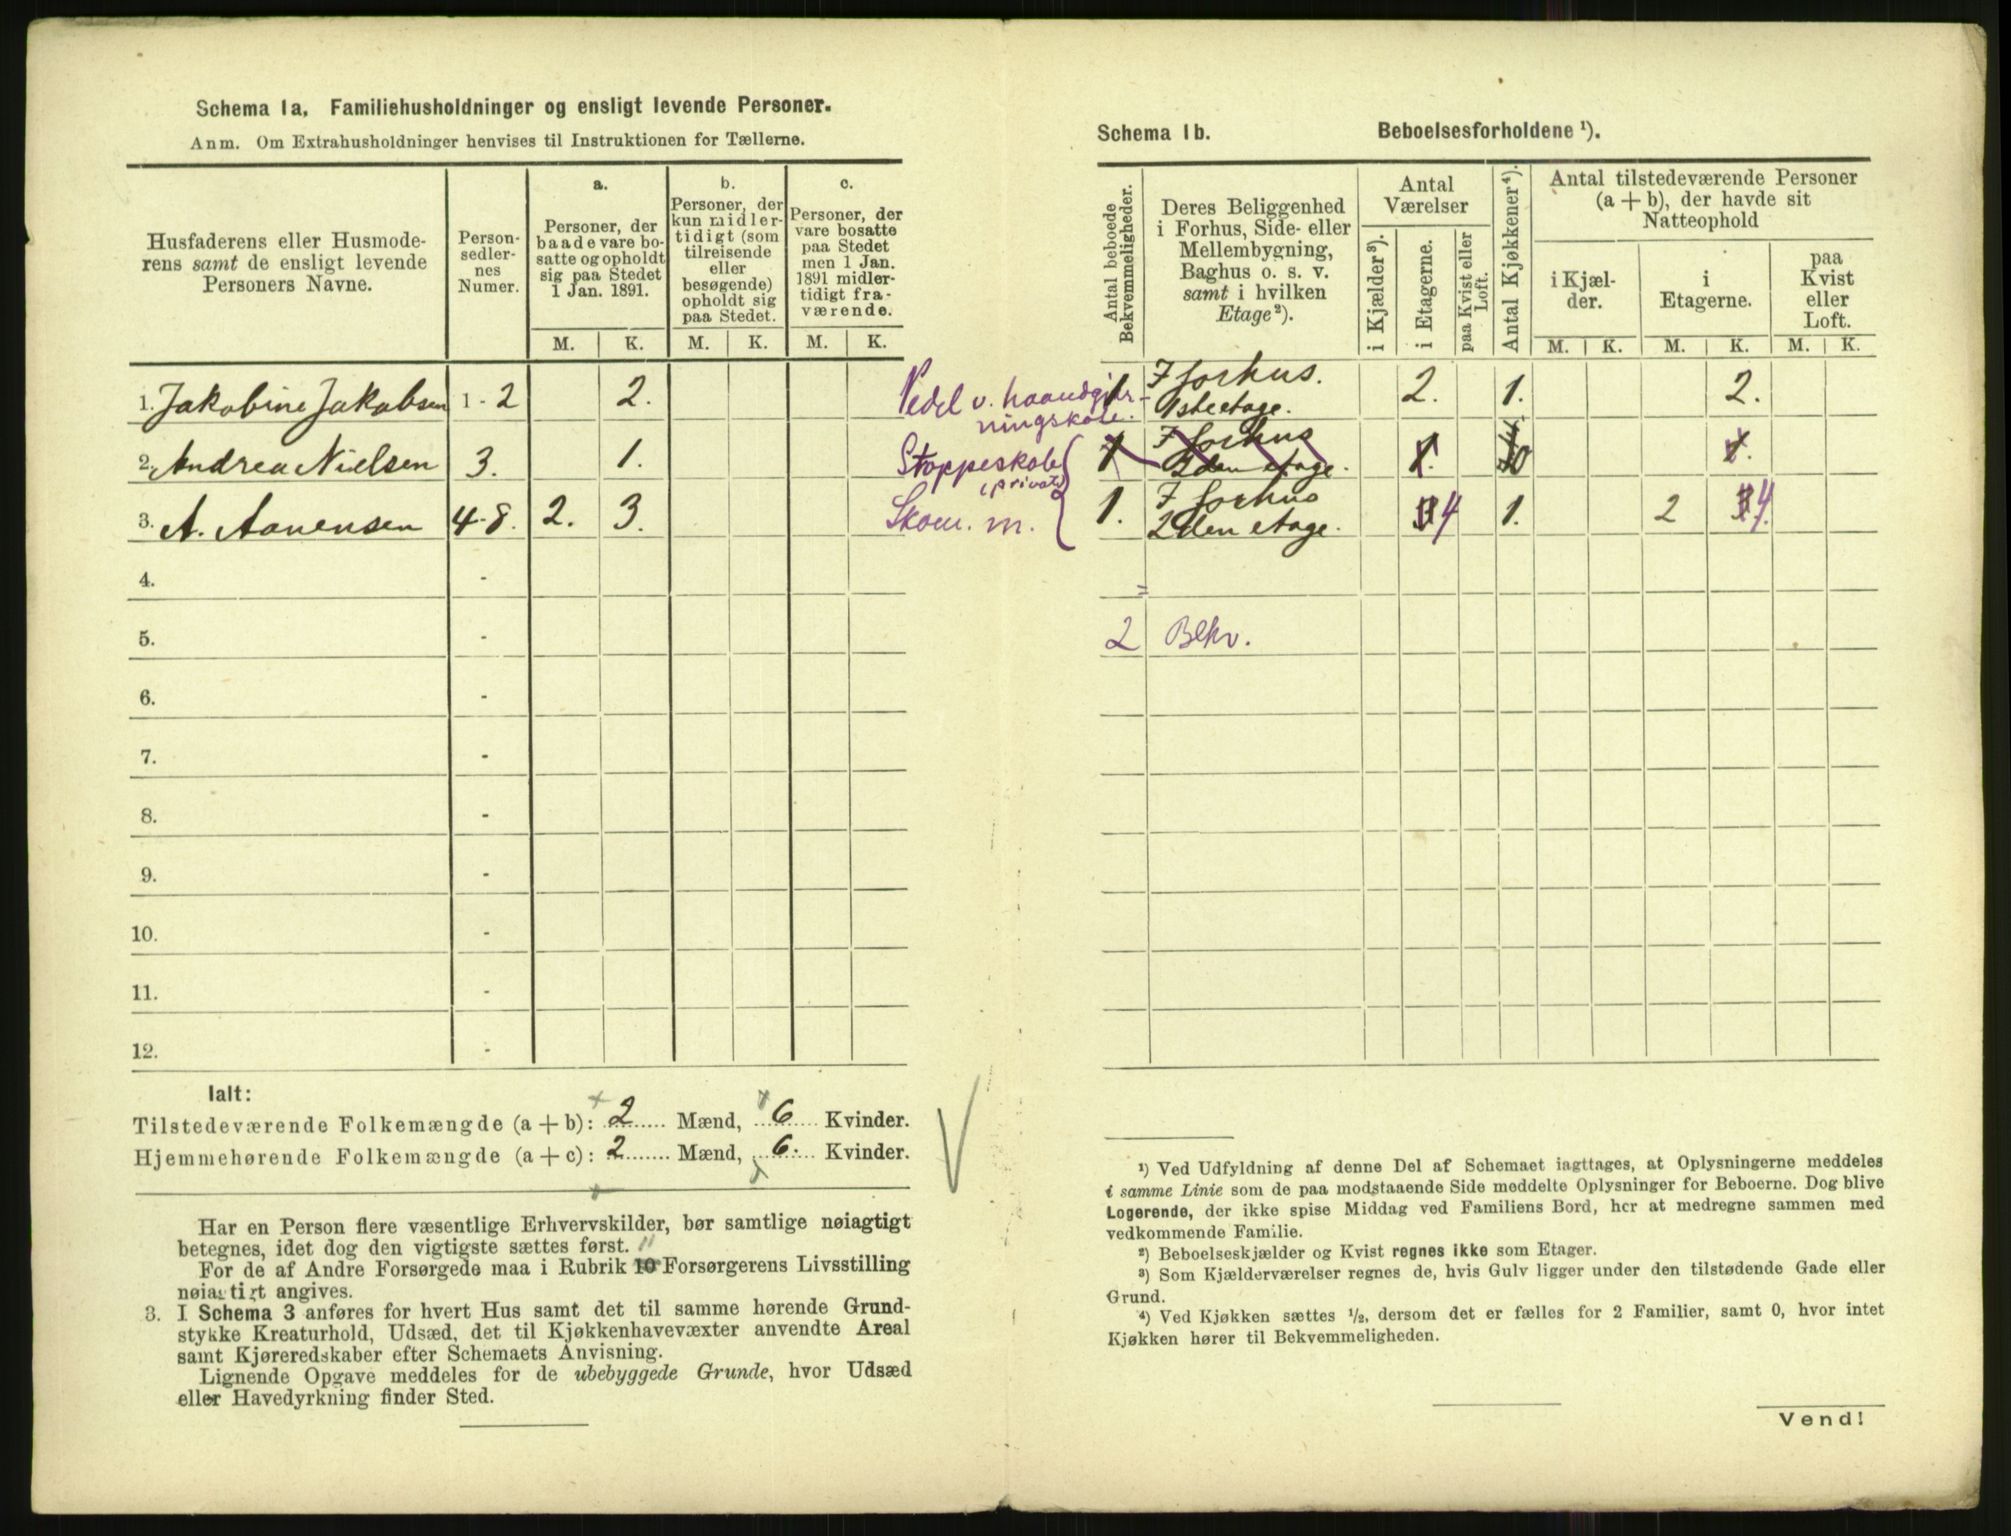 Schema 1a. Familiehusholdninger og ensligt levende Personer.
Anm. Om Extrahusholdninger henvises til Instruktionen for Tællerne.
Husfaderens eller Husmode-
rens samt de ensligt levende
Personers Navne.
Person-
sedler-
nes
Numer.
a.
Personer, der
baade vare bo-
satte og opholdt
sig paa Stedet
1 Jan. 1891.
b.
Personer, der
kun midler-
tidigt (som
tilreisende
eller
besøgende)
opholdt sig
paa Stedet.
c.
Personer, der
vare bosatte
paa Stedet
men 1 Jan.
1891 midler-
tidigt fra-
værende.
M. K. M. K. M. K.
1. Jakobine Jakobsen 1 - 2 2.
2. Andrea Nielsen 3. 1.
3. A. Aanensen 4-8. 2. 3.
4. -
5. -
6. -
7. -
8. -
9. -
10. -
11. -
12. -
Ialt:
Tilstedeværende Folkemængde (a + b): 2 Mænd, 6 Kvinder.
Hjemmehørende Folkemængde (a + c): 2 Mænd, 6. Kvinder.
Har en Person flere væsentlige Erhvervskilder, bør samtlige nøiagtigt
betegnes, idet dog den vigtigste sættes først.
For de af Andre Forsørgede maa i Rubrik 10 Forsørgerens Livsstilling
nøiagtigt angives.
3. I Schema 3 anføres for hvert Hus samt det til samme hørende Grund-
stykke Kreaturhold, Udsæd, det til Kjøkkenhavevæxter anvendte Areal
samt Kjøreredskaber efter Schemaets Anvisning.
Lignende Opgave meddeles for de ubebyggede Grunde, hvor Udsæd
eller Havedyrkning finder Sted.
Schema 1b. Beboelsesforholdene ¹).
Antal beboede
Bekvemmeligheder.
Deres Beliggenhed
i Forhus, Side- eller
Mellembygning,
Baghus o. s. v.
samt i hvilken
Etage²).
Antal
Værelser
i Kjælder³).
i Etagerne.
paa Kvist eller
Loft.
Antal Kjøkkener⁴).
Antal tilstedeværende Personer
(a + b), der havde sit
Natteophold
i Kjæl-
der.
i
Etagerne.
paa
Kvist
eller
Loft.
M. K. M. K. M. K.
Pedel v. haandgjer-
ningskole.
1 I forhus.
1ste etage. 2. 1. 2.
Stoppeskole
(privat)
1 I forhus
2den etage. 1. 0 1.
Skom. m.
1. I forhus
2den etage. 4 1. 2 4.
=
2 Bekv.
¹) Ved Udfyldning af denne Del af Schemaet iagttages, at Oplysningerne meddeles
i samme Linie som de paa modstaaende Side meddelte Oplysninger for Beboerne. Dog blive
Logerende, der ikke spise Middag ved Familiens Bord, her at medregne sammen med
vedkommende Familie.
²) Beboelseskjælder og Kvist regnes ikke som Etager.
³) Som Kjælderværelser regnes de, hvis Gulv ligger under den tilstødende Gade eller
Grund.
⁴) Ved Kjøkken sættes ½, dersom det er fælles for 2 Familier, samt 0, hvor intet
Kjøkken hører til Bekvemmeligheden.
Vend!